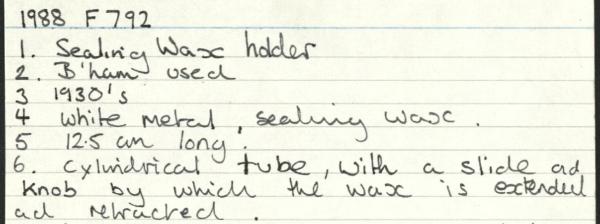 1988 F 792
1. Sealing Wax holder
2. B'ham used
3 1930's
4 white metal, sealing wax.
5 12.5 cm long.
6. cylindrical tube, with a slide ad
knob by which the wax is extended
ad retracted.